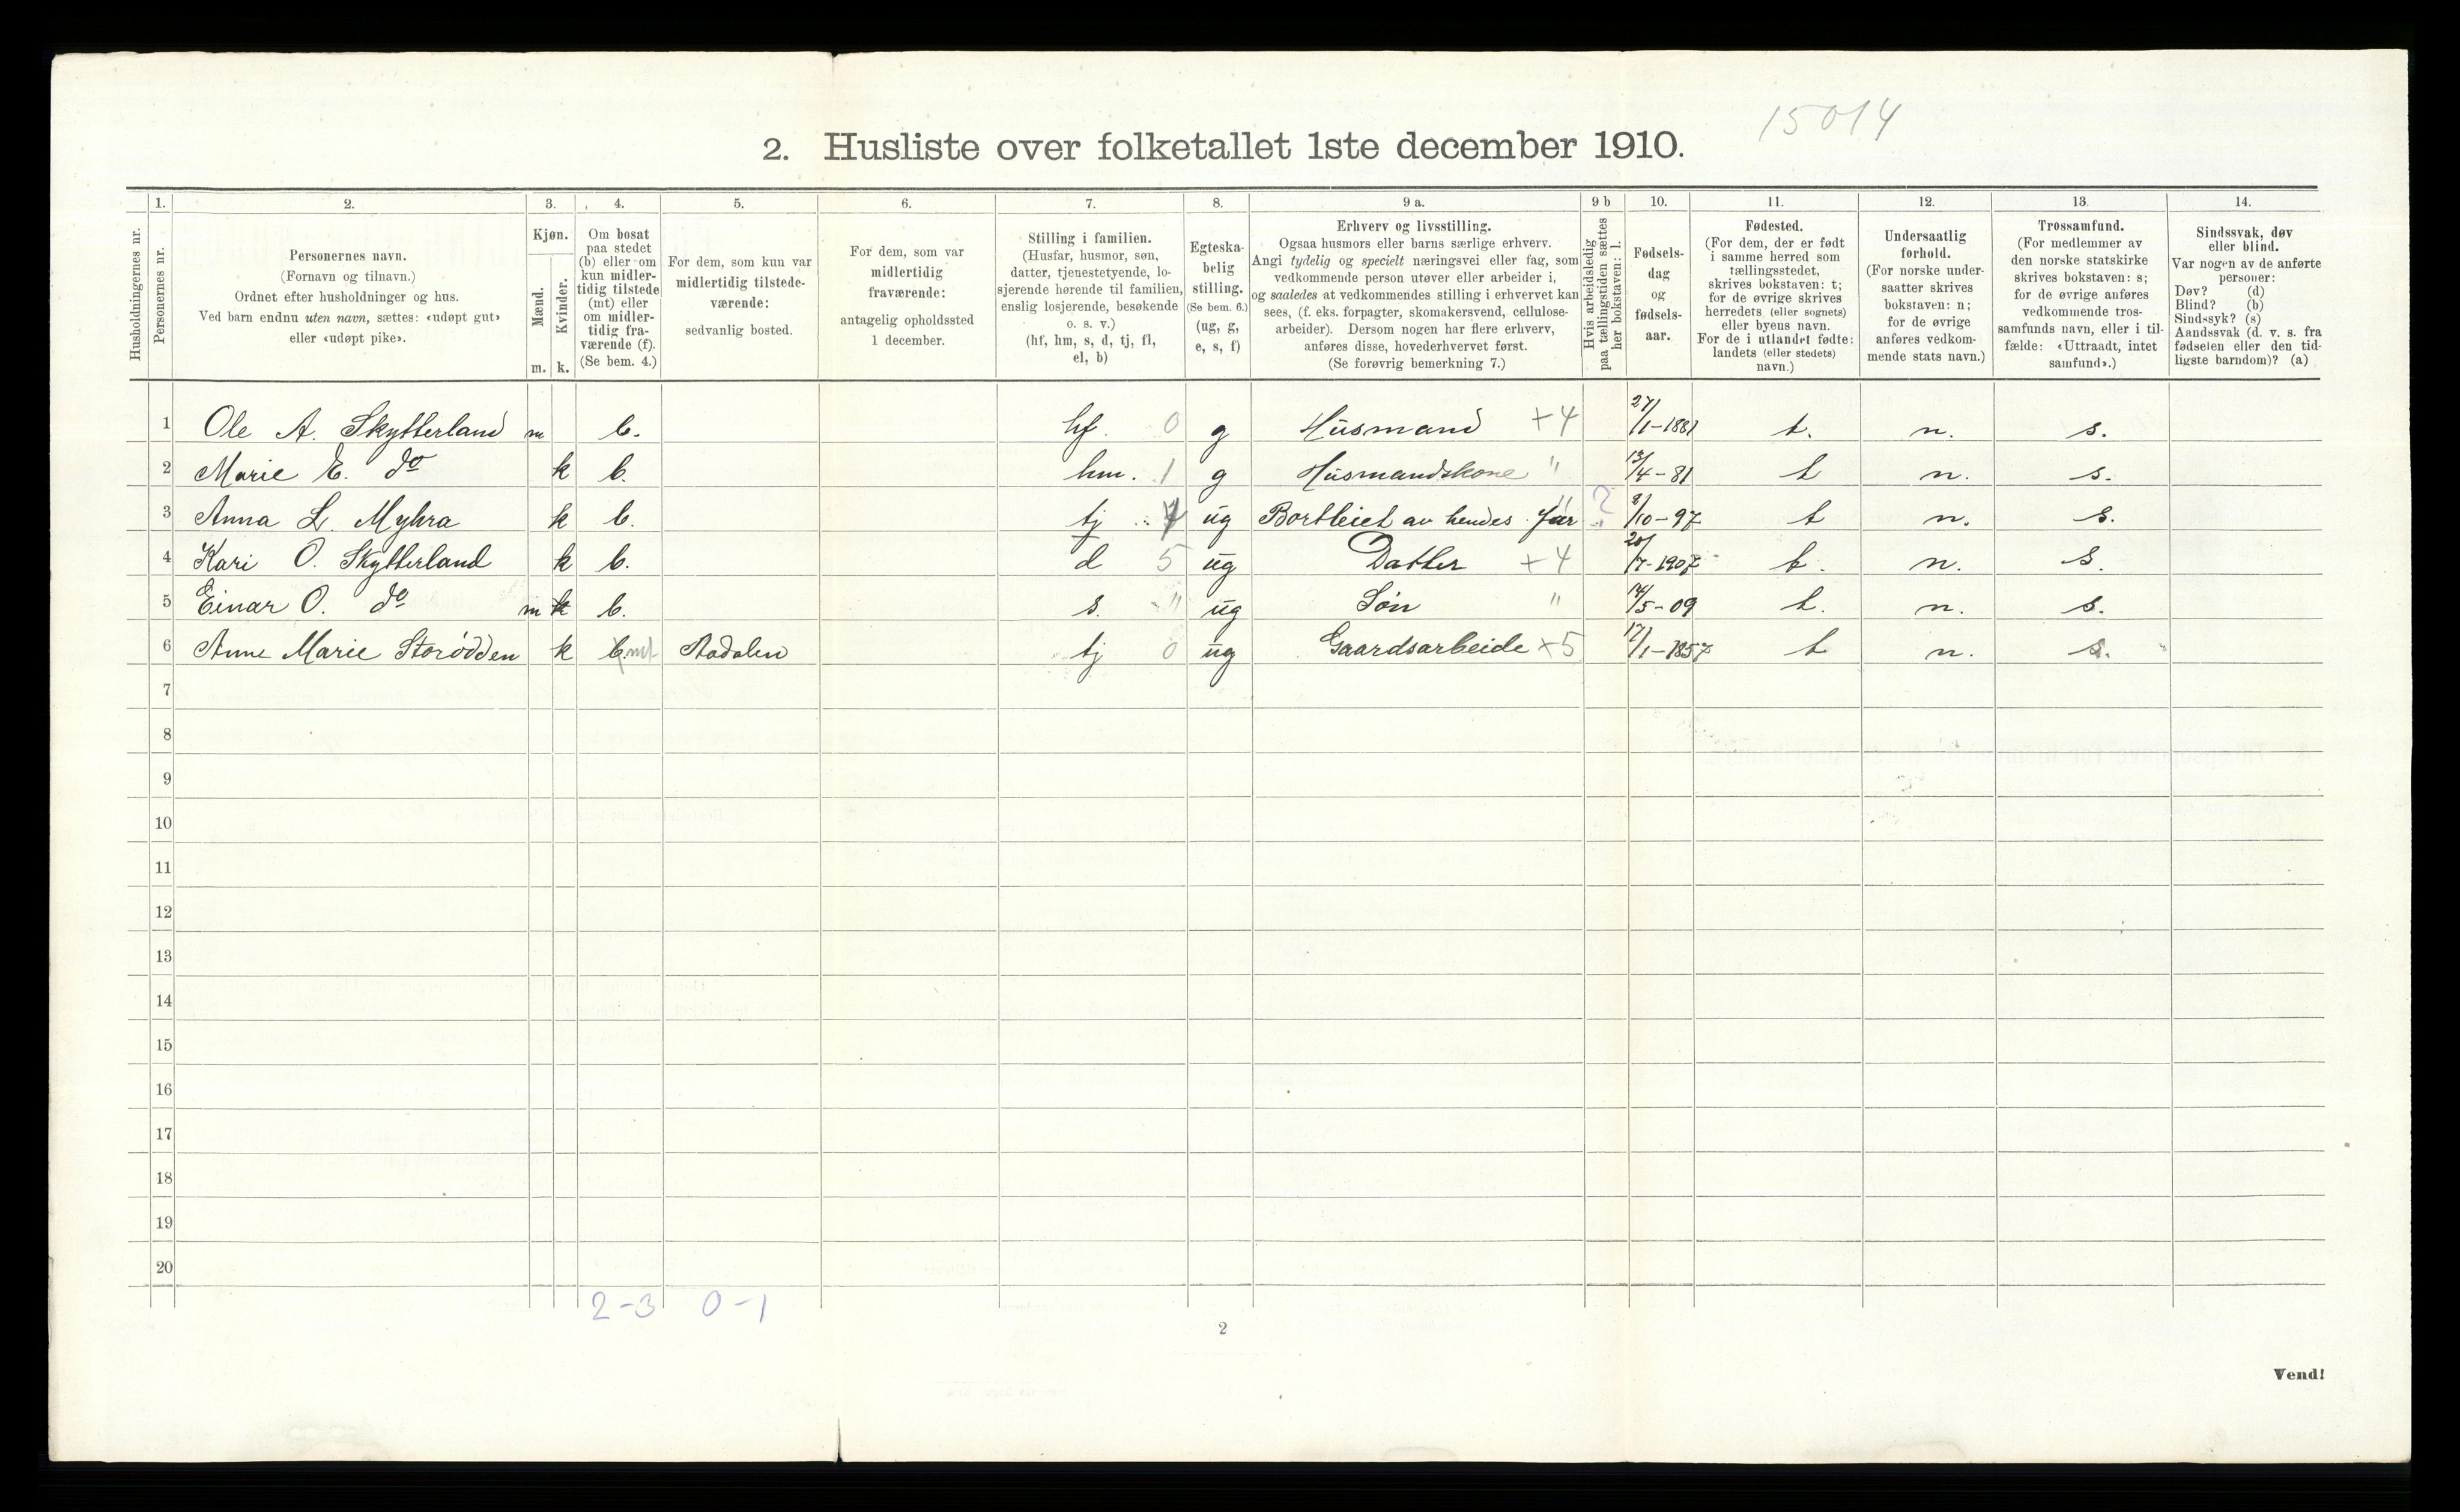 15014
2. Husliste over folketallet 1ste december 1910.
Husholdningernes nr.
1.
Personernes nr.
2.
Personernes navn.
(Fornavn og tilnavn.)
Ordnet efter husholdninger og hus.
Ved barn endnu uten navn, sættes: «udøpt gut»
eller «udøpt pike».
3.
Kjøn.
Mænd.
Kvinder.
m. k.
4.
Om bosat
paa stedet
(b) eller om
kun midler-
tidig tilstede
(mt) eller
om midler-
tidig fra-
værende (f).
(Se bem. 4.)
5.
For dem, som kun var
midlertidig tilstede-
værende:
sedvanlig bosted.
6.
For dem, som var
midlertidig
fraværende:
antagelig opholdssted
1 december.
7.
Stilling i familien.
(Husfar, husmor, søn,
datter, tjenestetyende, lo-
sjerende hørende til familien,
enslig losjerende, besøkende
o. s. v.)
(hf, hm, s, d, tj, fl,
el, b)
8.
Egteska-
belig
stilling.
(Se bem. 6.)
(ug, g,
e, s, f)
9 a.
Erhverv og livsstilling.
Ogsaa husmors eller barns særlige erhverv.
Angi tydelig og specielt næringsvei eller fag, som
vedkommende person utøver eller arbeider i,
og saaledes at vedkommendes stilling i erhvervet kan
sees, (f. eks. forpagter, skomakersvend, cellulose-
arbeider). Dersom nogen har flere erhverv,
anføres disse, hovederhvervet først.
(Se forøvrig bemerkning 7.)
9 b
Hvis arbeidsledig
paa tællingstiden sættes
her bokstaven: l.
10.
Fødsels-
dag
og
fødsels-
aar.
11.
Fødested.
(For dem, der er født
i samme herred som
tællingsstedet,
skrives bokstaven: t;
for de øvrige skrives
herredets (eller sognets)
eller byens navn.
For de i utlandet fødte:
landets (eller stedets)
navn.)
12.
Undersaatlig
forhold.
(For norske under-
saatter skrives
bokstaven: n;
for de øvrige
anføres vedkom-
mende stats navn.)
13.
Trossamfund.
(For medlemmer av
den norske statskirke
skrives bokstaven: s;
for de øvrige anføres
vedkommende tros-
samfunds navn, eller i til-
fælde: «Uttraadt, intet
samfund».)
14.
Sindssvak, døv
eller blind.
Var nogen av de anførte
personer:
Døv? (d)
Blind? (b)
Sindssyk? (s)
Aandssvak (d. v. s. fra
fødselen eller den tid-
ligste barndom)? (a)
1 Ole A. Skytterland m b. hf. 0 g Husmand +4 27/1-1881 t. n. s.
2 Marie E. do k b. hm. 1 g Husmandskone " 13/4-81 t n. s.
3 Anna L. Myhra k b. tj ug Bortleiet av hendes far ? 2/10-97 t n. s.
4 Kari O. Skytterland k b. d 5 ug Datter +4 20/7-1907 t. n. s.
5 Einar O. do m k b. s. " ug Søn " 14/5-09 t. n. s.
6 Anne Marie Storødden k b mt Aadalen tj 0 ug Gaardsarbeide +5 17/1-1857 t n. s.
7
8
9
10
11
12
13
14
15
16
17
18
19
20
2-3 0-1
2
Vend!